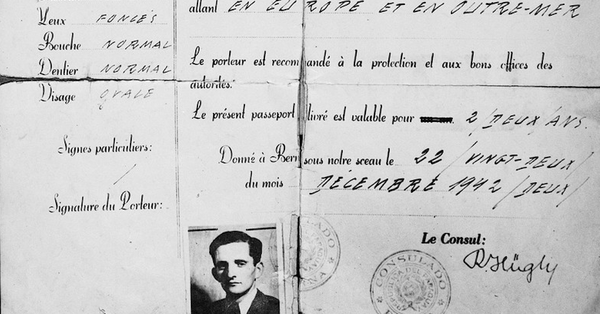 Yeux FONCÉS
Bouche NORMAL
Dentier NORMAL
Visage OVALE
Signes particuliers:
/
Signature du Porteur:
allant EN EUROPE ET EN OUTRE-MER
Le porteur est recommandé à la protection et aux bons offices des
autorités.
Le présent passeport livré est valable pour 2/DEUX/ANS.
Donné à Ber sous notre sceau le 22/VINGT-DEUX/
du mois DÉCEMBRE 1942/DEUX/
Le Consul:
R. Hügly
CONSULADO
CONSULADO